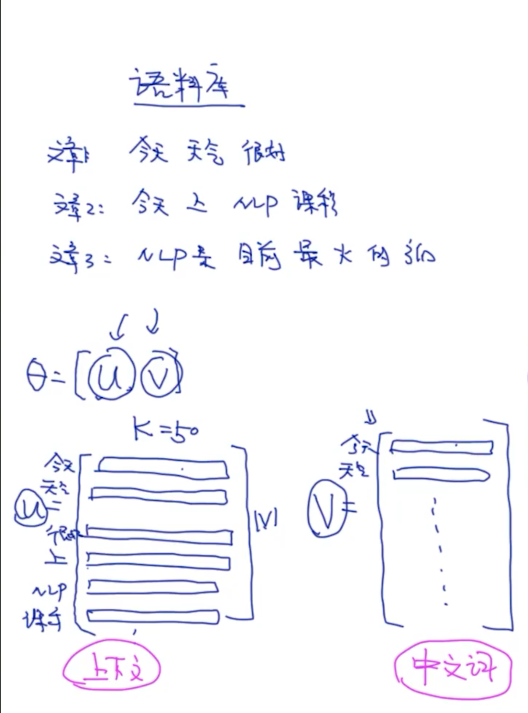 语料库
文章1: 今天 天气 很好
文章2: 今天 上 NLP 课程
文章3: NLP 是 目前 最 火 的
θ = [u v]
K = 50
今天
天气
u =
很好
上
NLP
课程
|V|
上下文
今天
天气
V =
中文词